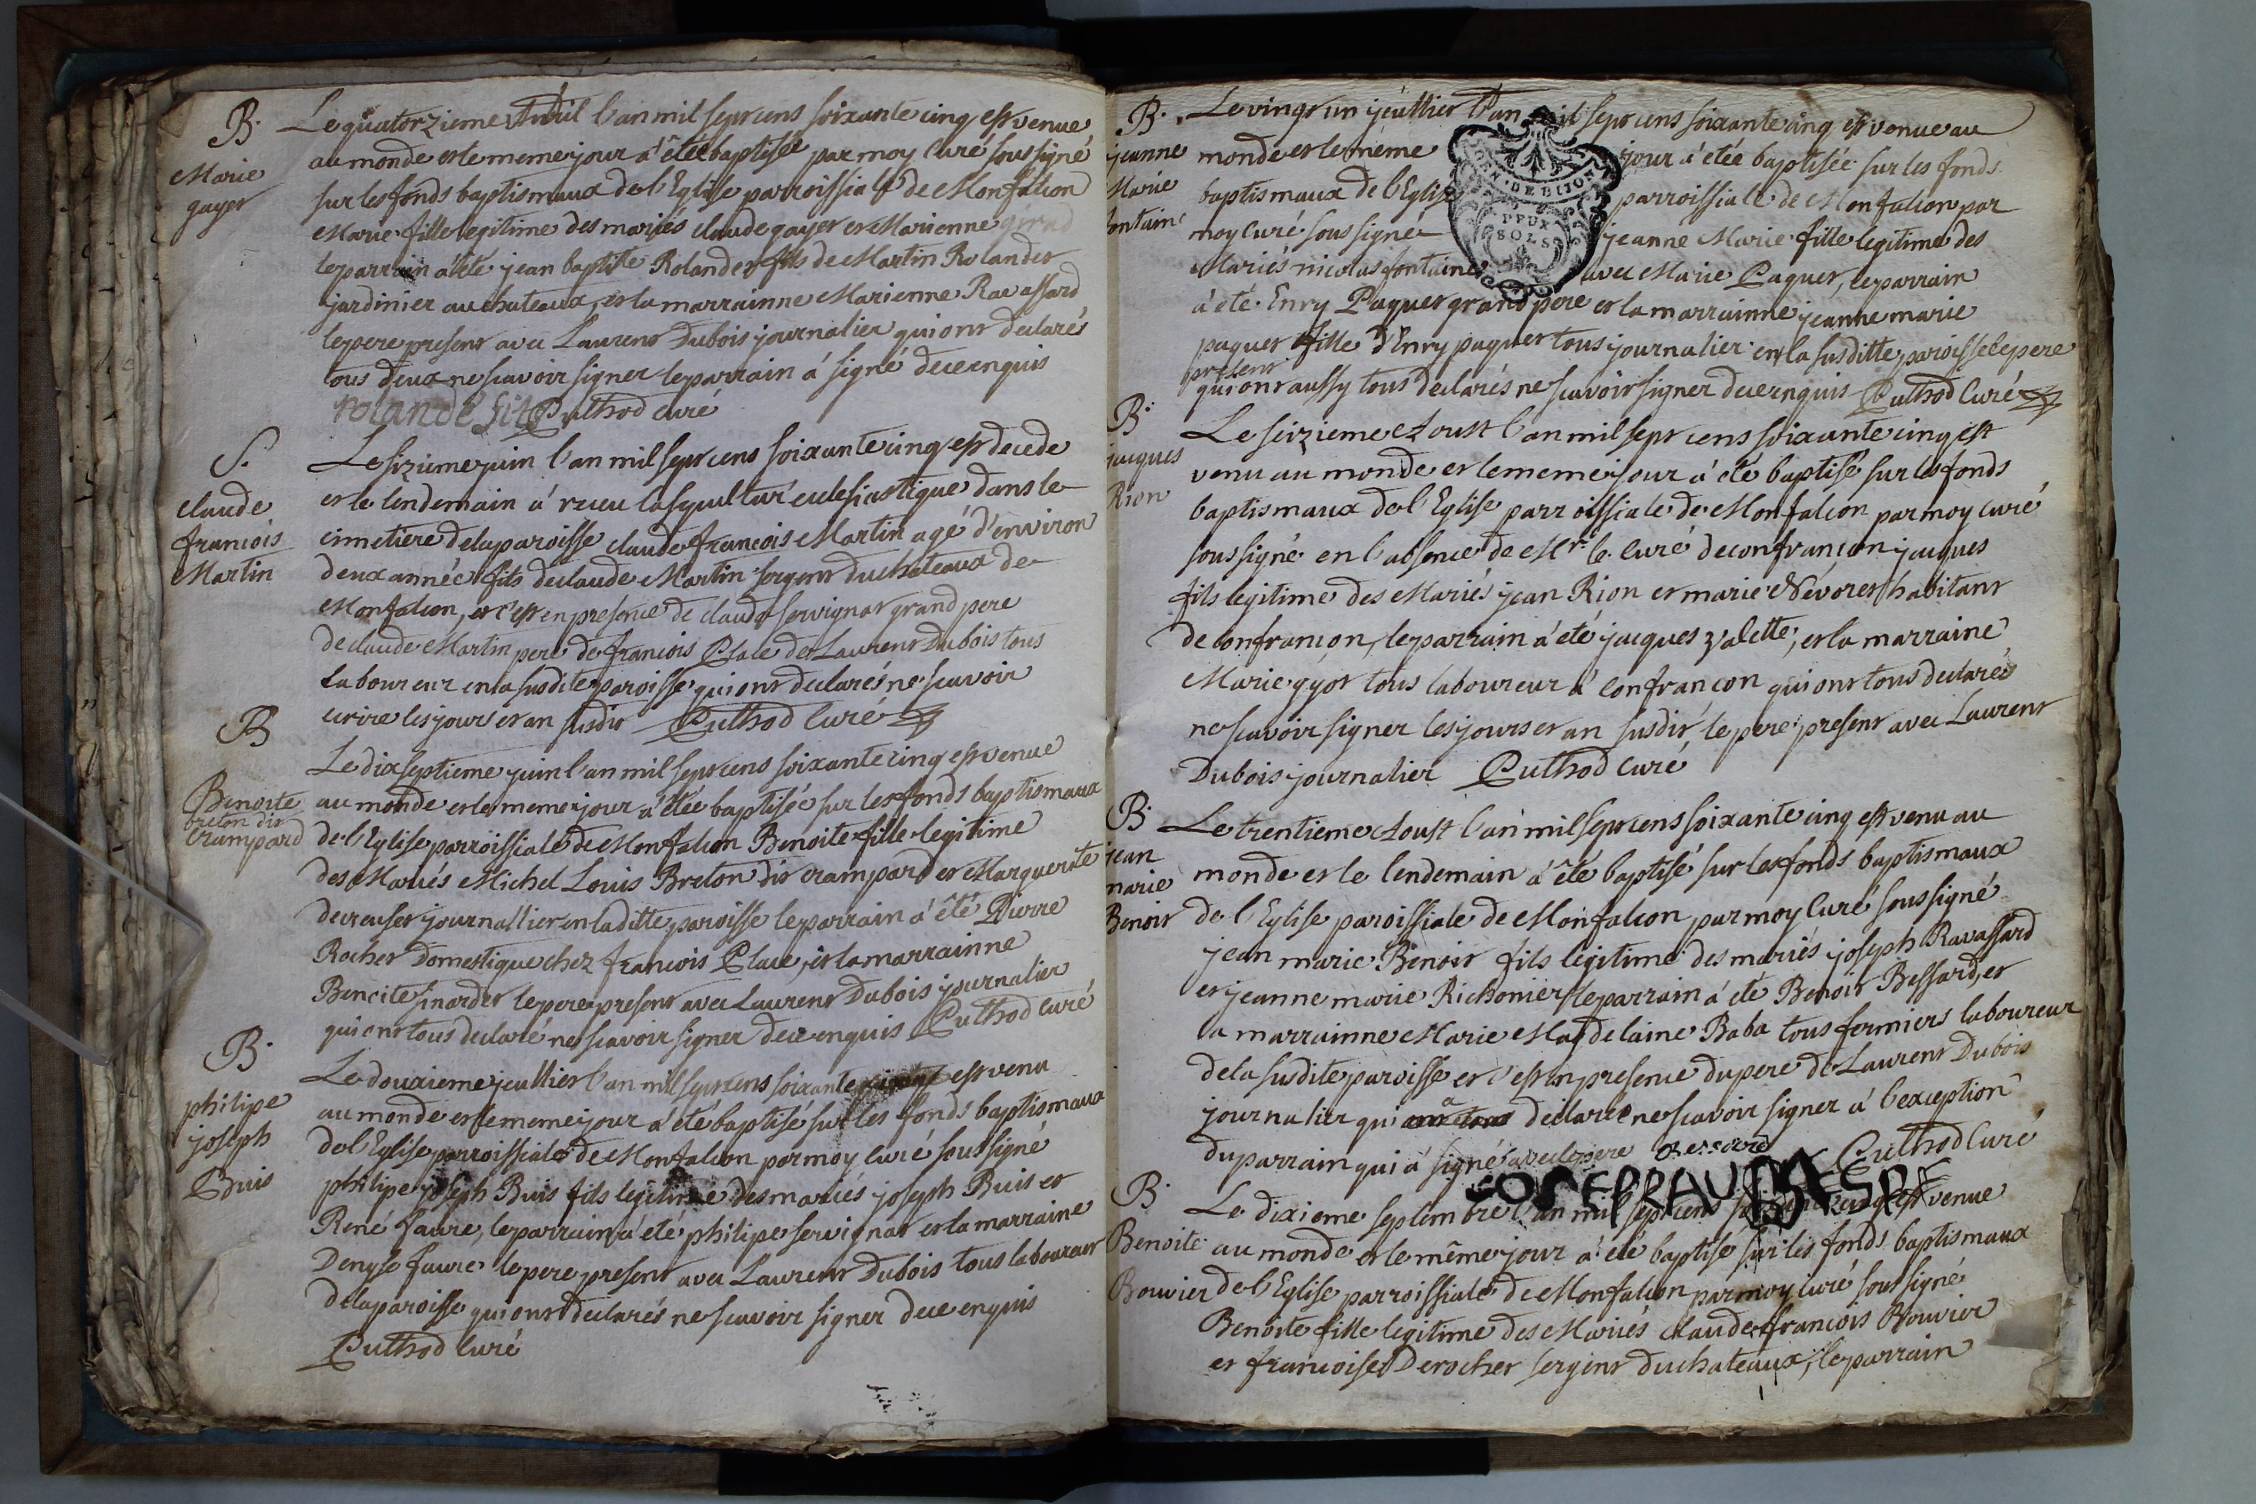 B.
Marie
gayer
Le quatorzieme Avril l'an mil sept cens soixante cinq est venue
au monde et le meme jour a étée baptisée par moy Curé soussigné
sur les fonds baptismaux de l'Eglise parroissiale de Monfalcon
Marie fille legitime des mariés claude gayer et Marienne girad
le parrain a été jean baptiste Rolandet fils de Martin Rolandet
jardinier au chateaux, et la marrainne Marienne Ravassard
le pere present avec Laurent Dubois journalier qui ont declarés
tous deux ne scavoir signer le parrain à signé de ce enquis
rolande fils Puthod curé
S.
claude
francois
Martin
Le sizieme juin l'an mil sept cens soixante cinq est decede
et le lendemain à recu la sepultur ecclesiastique dans le
cimetiere de la paroisse claude francois Martin agé d'environ
deux année fils de claude Martin sergent du chateaux de
Monfalcon, et c'est en presence de claude servignat grand pere
de claude Martin pere de francois Place de Laurent Dubois tous
laboureur en la susdite paroisse qui ont declarés ne scavoir
ecrire les jour et an susdit Puthod Curé
B
Benoite
breton dit
crampard
Le dix septieme juin l'an mil sept cens soixante cinq est venue
au monde et le meme jour a étée baptisée sur les fonds baptismaux
de l'Eglise parroissiale de Monfalcon Benoite fille legitime
des Mariés Michel Louis Breton dit crampard et Marguerite
decreuset journallier en laditte paroisse le parrain a été Pierre
Rochet Domestique chez francois Place, et la marrainne
Benoite sinardet le pere present avec Laurent Dubois journalier
qui ont tous declaré ne scavoir signer de ce enquis Puthod Curé
B.
philipe
joseph
Buis
Le douzieme jeullier l'an mil sept cens soixante est venu
au monde et le meme jour a été baptisé sur les fonds baptismaux
de l'Eglise parroissiale de Monfalcon par moy Curé soussigné
philipe joseph Buis fils legitime des mariés joseph Buis et
René faure, le parrain a été philipe servignat et la marraine
Denyse faure le pere present avec Laurent Dubois tous laboureur
de la paroisse qui ont declarés ne scavoir signer de ce enquis
Puthod Curé
B.
jeanne
Marie
fontaine
Le vingt un jeullier l'an mil sept cens soixante cinq est venue au
monde et le même jour a étée baptisée sur les fonds
baptismaux de l'Eglise parroissiale de Monfalcon par
moy Curé soussigné jeanne Marie fille legitime des
Mariés nicolas fontaine avec Marie Paquet, le parrain
à été Enry Paquet grand pere et la marrainne jeanne marie
paquet fille d'Enry paquet tous journalier en la susditte paroisse le pere
present
qui ont aussy tous declarés ne scavoir signer de ce enquis Puthod Curé
DEUX
SOLS
B.
jacques
Rion
Le seizieme Aoust l'an mil sept cens soixante cinq est
venu au monde et le meme jour a été baptisé sur les fonds
baptismaux de l'Eglise parroissiale de Monfalcon par moy curé
soussigné en l'absence de Mr. le curé de confrançon jacques
fils legitime des Mariés jean Rion et marie Névoret habitant
de confrançon, le parrain a été jacques valette, et la marraine
Marie gyot tous laboureur à confrancon qui ont tous declarés
ne scavoir signer les jours et an susdit, le pere present avec Laurent
Dubois journalier Puthod curé
B.
jean
marie
Benoit
Le trentieme Aoust l'an mil sept cens soixante cinq est venu au
monde et le lendemain a été baptisé sur les fonds baptismaux
de l'Eglise paroissiale de Monfalcon par moy Curé soussigné
jean marie Benoit fils legitime des mariés joseph Ravassard
et jeanne marie Richonier le parrain a été Benoit Bessard, et
la marrainne Marie Magdelaine Baba tous fermiers laboureur
de la susdite paroisse et c'est en presence du pere de Laurent Dubois
journalier qui a declaré ne scavoir signer à l'exception
du parrain qui a signé avec le pere Bessard Puthod Curé
B.
Benoite
Bouvier
Le dixieme septembre l'an mil sept cens soixante cinq est venue
au monde et le même jour a été baptise sur les fonds baptismaux
de l'Eglise parroissiale de Monfalcon par moy Curé soussigné
Benoite fille legitime des Mariés claude francois Bouvier
et francoise Derochet sergent du chateaux, le parrain